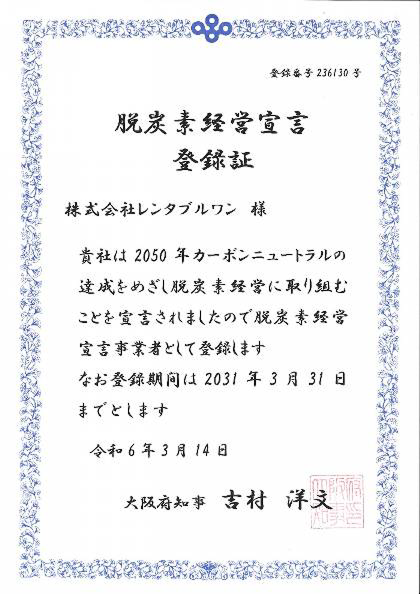 登録番号236130号
脱炭素経営宣言
登録証
株式会社レンタブルワン 様
貴社は2050年カーボンニュートラルの
達成をめざし脱炭素経営に取り組む
ことを宣言されましたので脱炭素経営
宣言事業者として登録します
なお登録期間は2031年3月31日
までとします
令和6年3月14日
大阪府知事 吉村 洋文